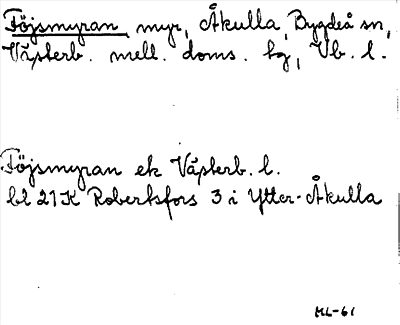 Töjsmyran, myr, Åkulla, Bygdeå sn,
Västerb. mell. doms. tg, Vb. l.
Töjsmyran ek Västerb. l.
bl 21K Robertsfors 3 i Ytter-Åkulla
ML-61